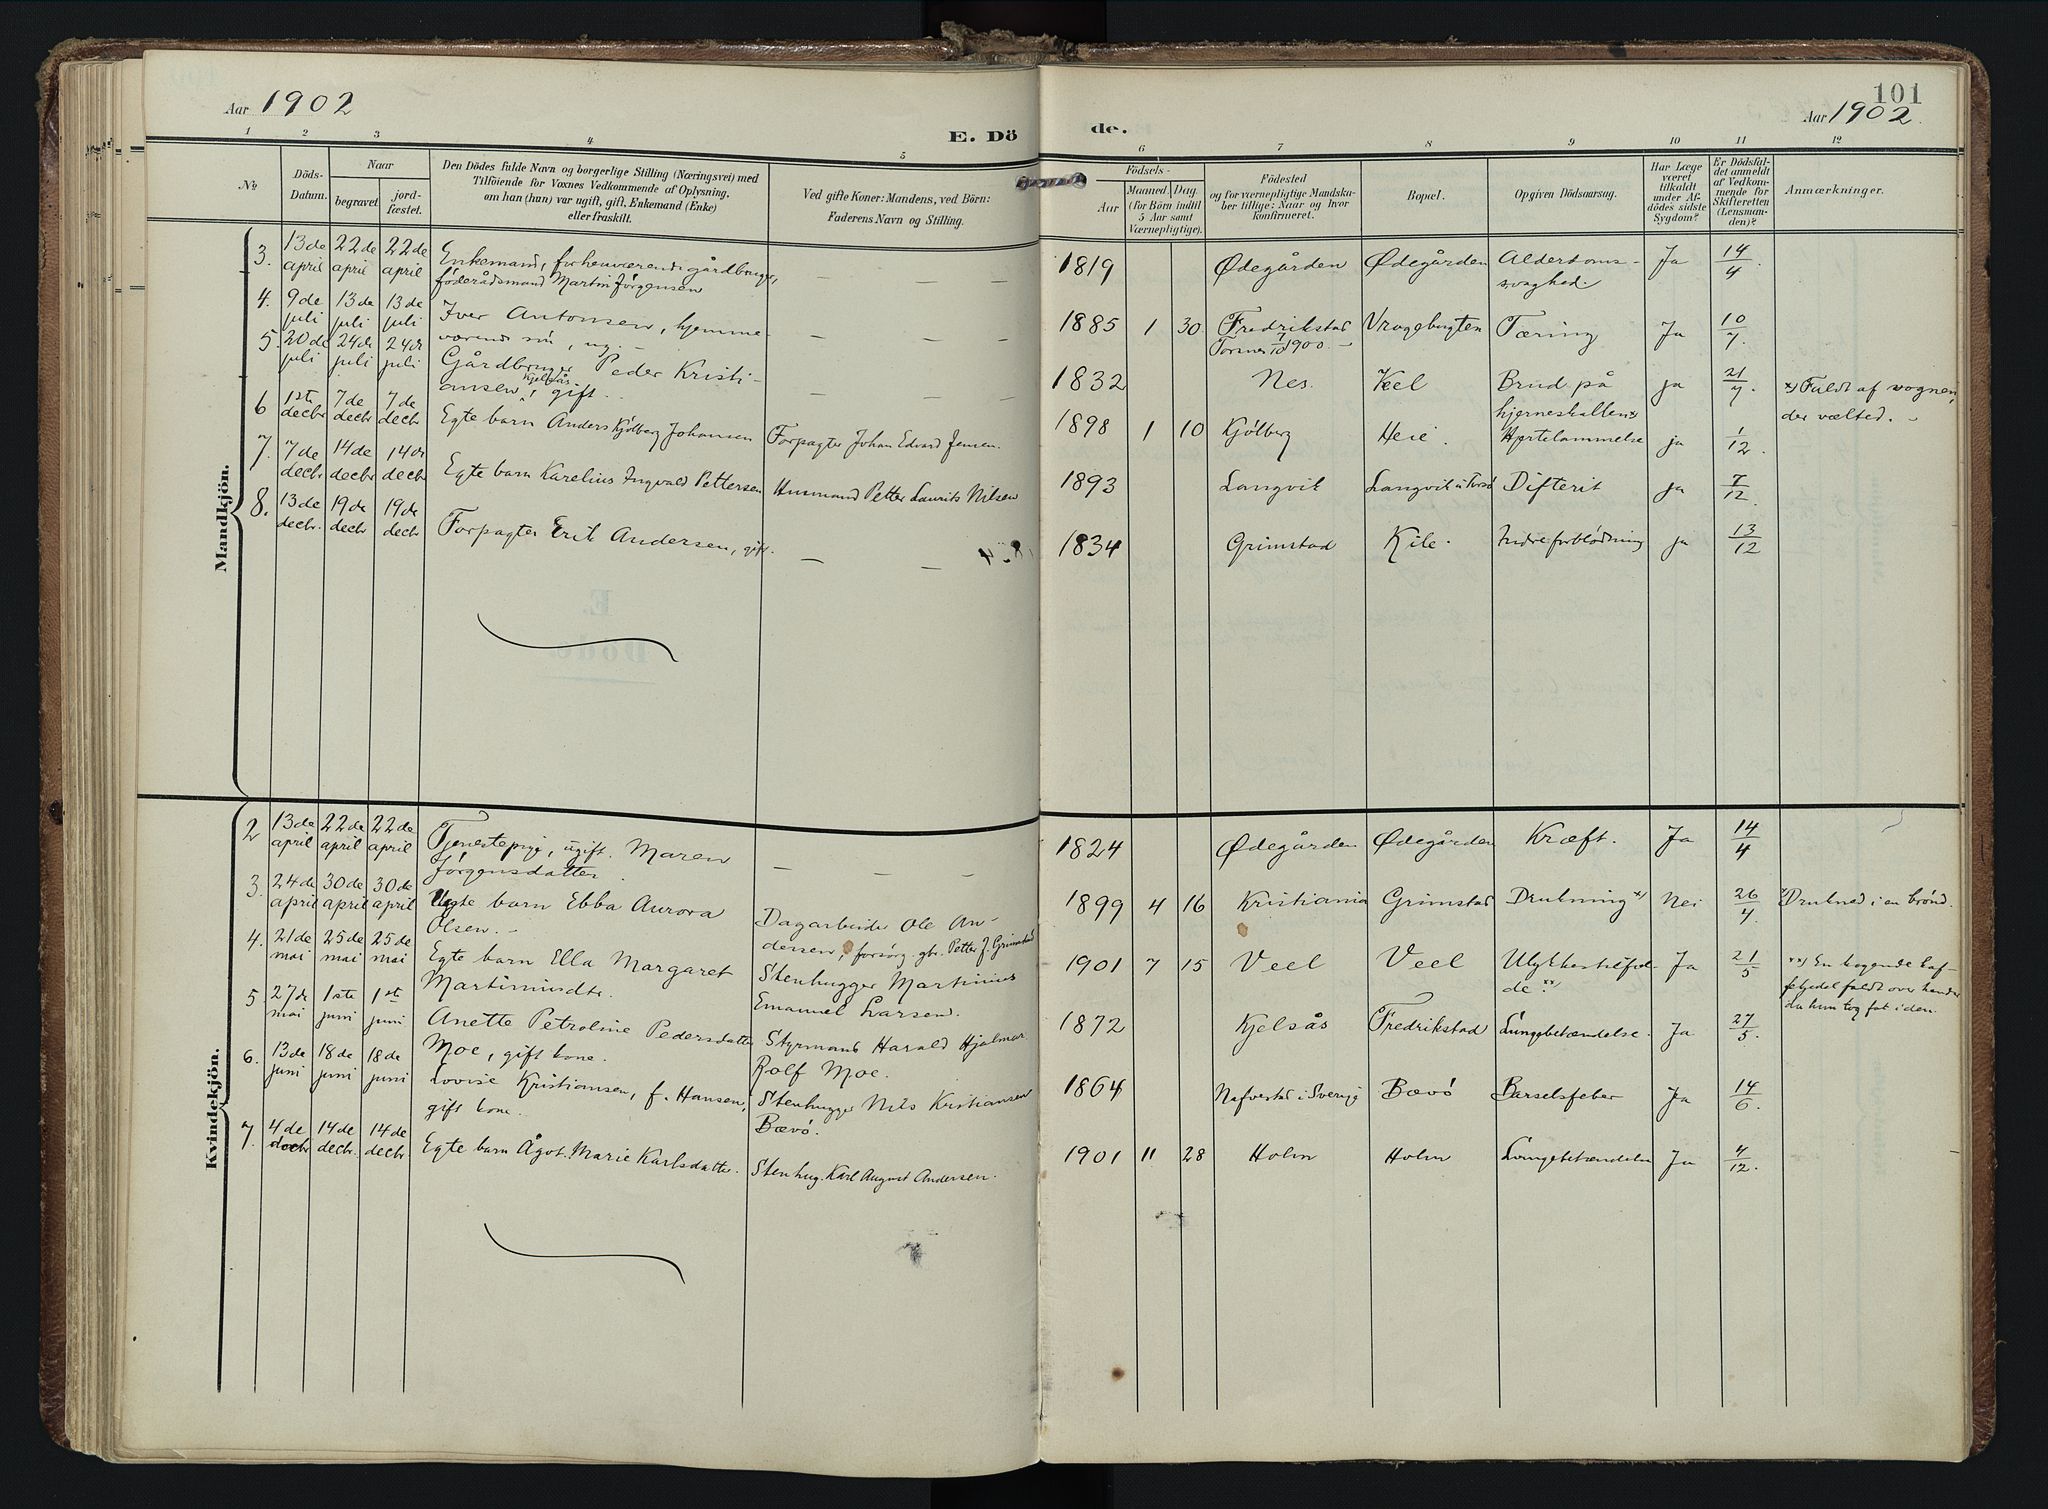 Aar 1902
E. Dö
de.
101
Aar 1902.
1 2 3 4 5 6 7 8 9 10 11 12
No
Döds-
Datum.
Naar
begravet.
jord-
fæstet.
Den Dödes fulde Navn og borgerlige Stilling (Næringsvei) med
Tilföiende for Voxnes Vedkommende af Oplysning,
om han (hun) var ugift, gift, Enkemand (Enke)
eller fraskilt.
Ved gifte Koner: Mandens, ved Börn:
Faderens Navn og Stilling.
Födsels-
Aar
Maaned. Dag.
(for Börn indtil
5 Aar samt
Værnepligtige).
Födested
og for værnepligtige Mandska-
ber tillige: Naar og hvor
konfirmeret.
Bopæl.
Opgiven Dödsaarsag.
Har Læge
været
tilkaldt
under Af-
dödes sidste
Sygdom?
Er Dödsfal-
det anmeldt
af Vedkom-
mende for
Skifteretten
(Lensman-
den)?
Anmærkninger.
Mandkjön.
3. 13de april 22de april 22de april
Enkemand, forhenværende gårdbruger,
föderådsmand Martin Jörgensen
— — —
1819 Ødegården Ødegården Alderdoms-
svaghed. Ja 14/4.
4. 9de juli 13de juli 13de juli
Iver Antonsen, hjemme
værende sön, ug. —
— — —
1885 1 30 Fredrikstad
Torsnes 7/10 1900. —
Vragebugten Tæring Ja 10/7.
5. 20de juli 24de juli 24de juli
Gårdbruger Peder Kristi-
ansen, Kjelsås, gift.
— — —
1832 Nes. Veel Brud på
hjerneskallen x) ja 21/7
x) Faldt af vognen,
der vælted. —
6 1ste decbr 7de decbr 7de decbr
Egte barn Anders Kjölberg Johansen
Forpagter Johan Edvard Jensen.
1898 1 10 Kjölberg Heie. Hjertelammelse ja 1/12.
7. 7de decbr 14de decbr 14de decbr
Egte barn Karelius Ingvald Pettersen
Husmand Petter Laurits Nilsen
1893 Langvik Langvik u. Torsö Difterit ja 7/12.
8. 13de decbr. 19de decbr 19de decbr
Forpagter Erik Andersen, gift.
— —
1834 Grimstad Kile. Indre forblödning ja 13/12
E.
Döde.
Kvindekjön.
2 13de april 22de april 22de april
Tjenestepige, ugift. Maren
Jörgensdatter
— — —
1824 Ødegården Ødegården Kræft. Ja 14/4
3. 24de april 30de april 30de april
Uegte barn Ebba Aurora
Olsen. —
Dagarbeider Ole An-
dersen, forsörg. gbr. Petter J. Grimstad
1899 4 16 Kristiania Grimstad Drukning x) Nei 26/4.
x) Drukned i en brönd.
4. 21de mai 25de mai 25de mai
Egte barn Ella Margaret
Martiniusdtr.
Stenhugger Martinius
Emanuel Larsen.
1901 7 15 Veel Veel Ulykkestilfæl-
de. xx) Ja 21/5
xx) En kogende kaf-
fekjedel faldt over hende
da hun tog fat i den.
5. 27de mai 1ste juni 1ste juni
Anette Petroline Pedersdatter
Moe, gift kone.
Styrmand Harald Hjalmar
Rolf Moe.
1872 Kjelsås Fredrikstad Lungebetændelse. Ja 27/5.
6. 13de juni 18de juni 18de juni
Lovise Kristiansen, f. Hansen,
gift kone.
Stenhugger Nils Kristiansen
Bævö.
1864 Nafverstad i Sverige Bævö Barselsfeber Ja 14/6.
7. 4de decbr 14de decbr. 14de decbr
Egte barn Ågot Marie Karlsdatter.
Stenhug. Karl August Andersen.
1901 11 28 Holm Holm Lungebetændelse Ja 4/12.